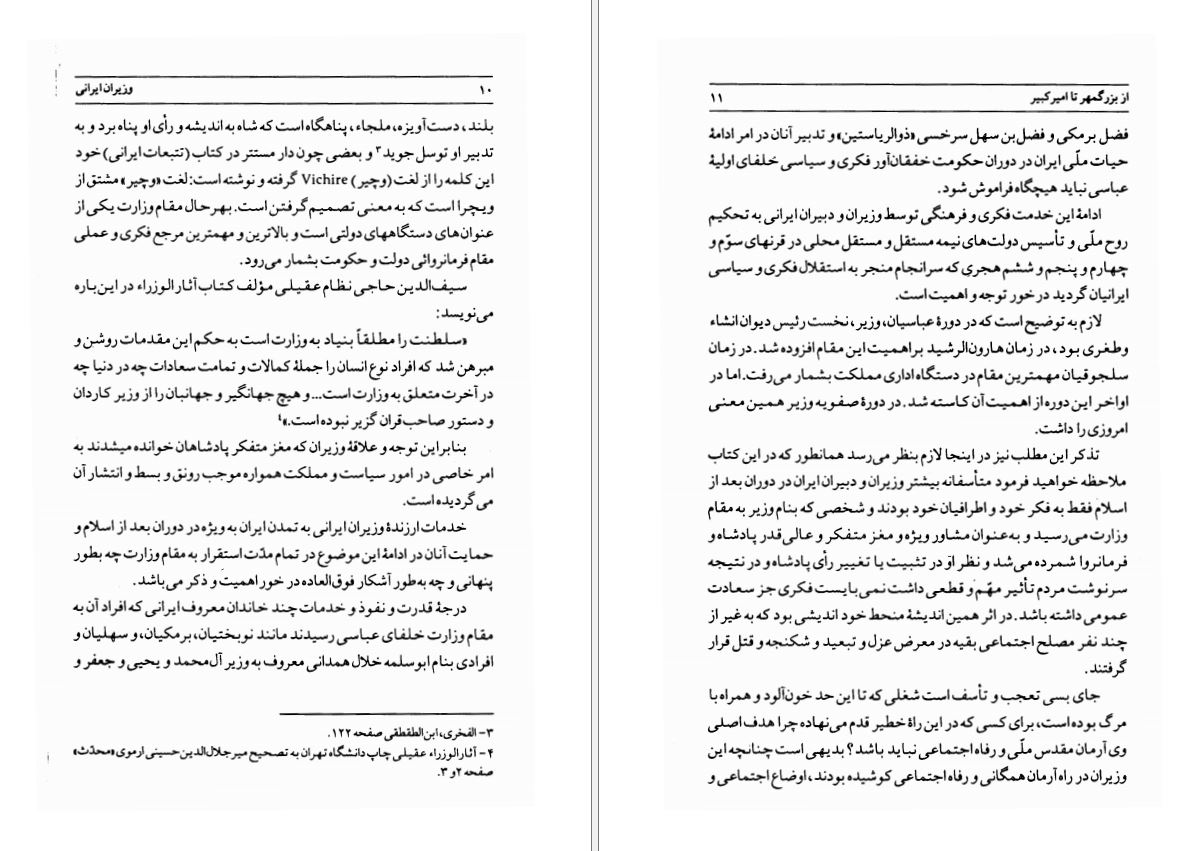 ۱۰ وزیران ایرانی
بلند، دست‌آویزه، ملجاء، پناهگاه است که شاه به اندیشه و رأی او پناه برد و به
تدبیر او توسل جوید۳ و بعضی چون دار مستتر در کتاب (تتبعات ایرانی) خود
این کلمه را از لغت (وچیر) Vichire گرفته و نوشته است: لغت «وچیر» مشتق از
ویچرا است که به معنی تصمیم گرفتن است. بهرحال مقام وزارت یکی از
عنوان‌های دستگاههای دولتی است و بالاترین و مهمترین مرجع فکری و عملی
مقام فرمانروائی دولت و حکومت بشمار می‌رود.
سیف‌الدین حاجی نظام عقیلی مؤلف کتاب آثارالوزراء در این باره
می‌نویسد:
«سلطنت را مطلقاً بنیاد به وزارت است به حکم این مقدمات روشن و
مبرهن شد که افراد نوع انسان را جملهٔ کمالات و تمامت سعادات چه در دنیا چه
در آخرت متعلق به وزارت است... و هیچ جهانگیر و جهانبان را از وزیر کاردان
و دستور صاحب‌قران گزیر نبوده است.»۴
بنابراین توجه و علاقهٔ وزیران که مغز متفکر پادشاهان خوانده میشدند به
امر خاصی در امور سیاست و مملکت همواره موجب رونق و بسط و انتشار آن
می‌گردیده است.
خدمات ارزندهٔ وزیران ایرانی به تمدن ایران به ویژه در دوران بعد از اسلام و
حمایت آنان در ادامهٔ این موضوع در تمام مدّت استقرار به مقام وزارت چه بطور
پنهانی و چه به‌طور آشکار فوق‌العاده در خور اهمیت و ذکر می‌باشد.
درجهٔ قدرت و نفوذ و خدمات چند خاندان معروف ایرانی که افراد آن به
مقام وزارت خلفای عباسی رسیدند مانند نوبختیان، برمکیان، و سهلیان و
افرادی بنام ابوسلمه خلال همدانی معروف به وزیر آل‌محمد و یحیی و جعفر و
۳- الفخری، ابن‌الطقطقی صفحه ۱۲۲.
۴- آثارالوزراء عقیلی چاپ دانشگاه تهران به تصحیح میرجلال‌الدین حسینی ارموی «محدّث»
صفحه ۲ و ۳.
از بزرگمهر تا امیرکبیر ۱۱
فضل برمکی و فضل بن سهل سرخسی «ذوالریاستین» و تدبیر آنان در امر ادامهٔ
حیات ملّی ایران در دوران حکومت خفقان‌آور فکری و سیاسی خلفای اولیهٔ
عباسی نباید هیچگاه فراموش شود.
ادامهٔ این خدمت فکری و فرهنگی توسط وزیران و دبیران ایرانی به تحکیم
روح ملّی و تأسیس دولت‌های نیمه مستقل و مستقل محلی در قرنهای سوّم و
چهارم و پنجم و ششم هجری که سرانجام منجر به استقلال فکری و سیاسی
ایرانیان گردید در خور توجه و اهمیت است.
لازم به توضیح است که در دورهٔ عباسیان، وزیر، نخست رئیس دیوان انشاء
وطغری بود، در زمان هارون‌الرشید بر اهمیت این مقام افزوده شد. در زمان
سلجوقیان مهمترین مقام در دستگاه اداری مملکت بشمار می‌رفت. اما در
اواخر این دوره از اهمیت آن کاسته شد. در دورهٔ صفویه وزیر همین معنی
امروزی را داشت.
تذکر این مطلب نیز در اینجا لازم بنظر می‌رسد همانطور که در این کتاب
ملاحظه خواهید فرمود متأسفانه بیشتر وزیران و دبیران ایران در دوران بعد از
اسلام فقط به فکر خود و اطرافیان خود بودند و شخصی که بنام وزیر به مقام
وزارت می‌رسید و به‌عنوان مشاور ویژه و مغز متفکر و عالی‌قدر پادشاه و
فرمانروا شمرده می‌شد و نظر او در تثبیت یا تغییر رأی پادشاه و در نتیجه
سرنوشت مردم تأثیر مهّم و قطعی داشت نمی‌بایست فکری جز سعادت
عمومی داشته باشد. در اثر همین اندیشهٔ منحط خود اندیشی بود که به غیر از
چند نفر مصلح اجتماعی بقیه در معرض عزل و تبعید و شکنجه و قتل قرار
گرفتند.
جای بسی تعجب و تأسف است شغلی که تا این حد خون‌آلود و همراه با
مرگ بوده است، برای کسی که در این راهٔ خطیر قدم می‌نهاده چرا هدف اصلی
وی آرمان مقدس ملّی و رفاه اجتماعی نباید باشد؟ بدیهی است چنانچه این
وزیران در راه آرمان همگانی و رفاه اجتماعی کوشیده بودند، اوضاع اجتماعی و